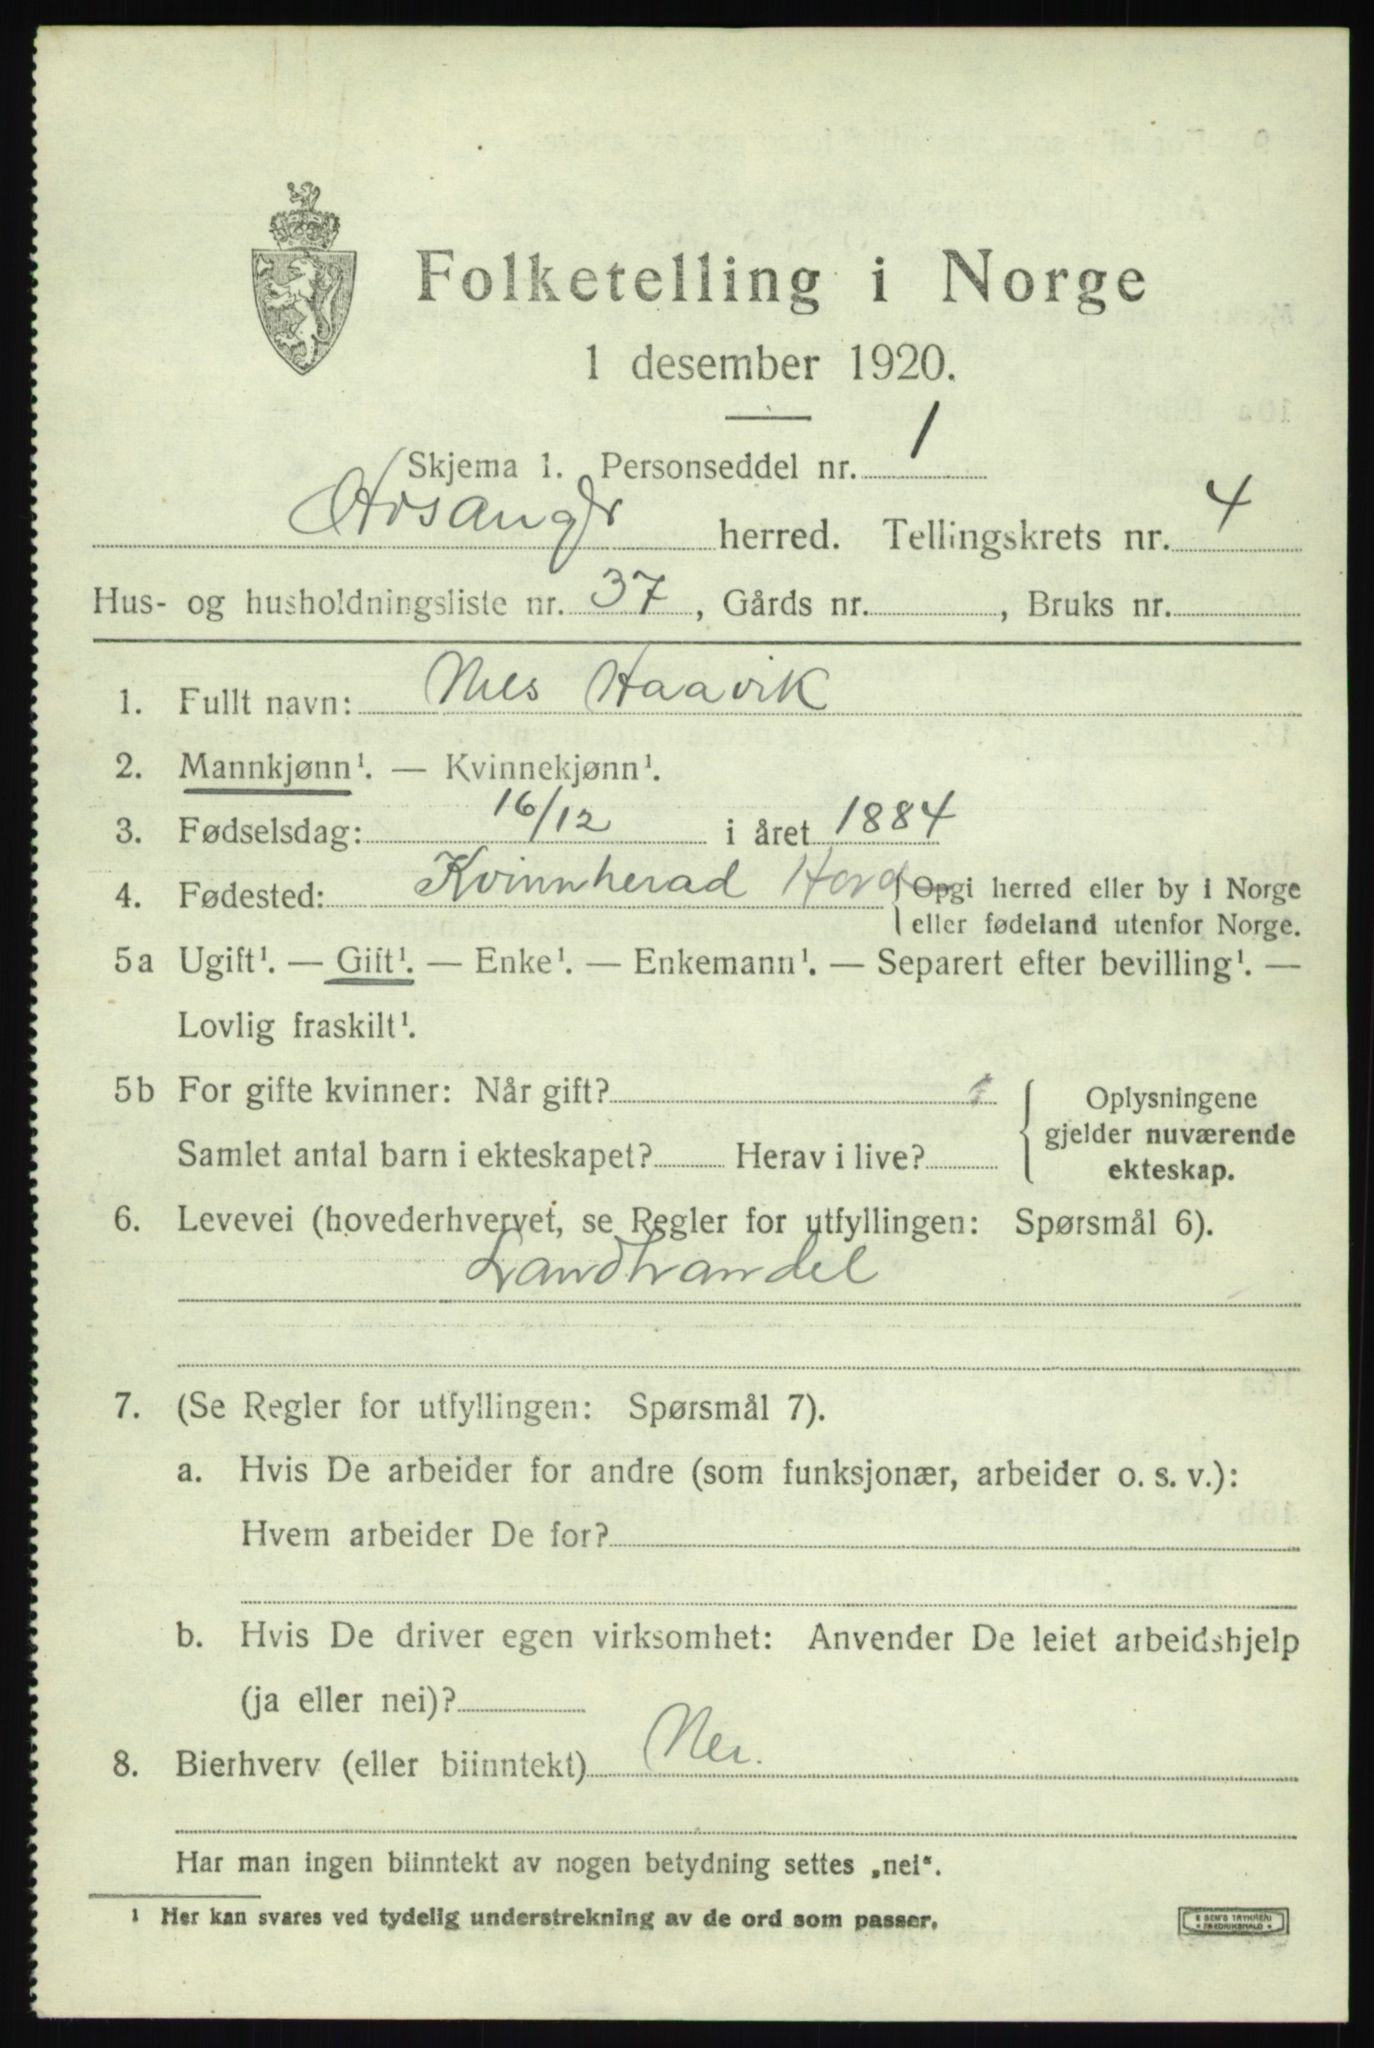 Folketelling i Norge
1 desember 1920.
Skjema 1. Personseddel nr. 1
Hosanger herred. Tellingskrets nr. 4
Hus- og husholdningsliste nr. 37, Gårds nr. , Bruks nr.
1. Fullt navn: Nils Haavik
2. Mannkjønn¹. — Kvinnekjønn¹.
3. Fødselsdag: 16/12 i året 1884
4. Fødested: Kvinnherad Hord {Opgi herred eller by i Norge
eller fødeland utenfor Norge.
5a Ugift¹. — Gift¹. — Enke¹. — Enkemann¹. — Separert efter bevilling¹. —
Lovlig fraskilt¹.
5b For gifte kvinner: Når gift?
Samlet antal barn i ekteskapet? Herav i live?
Oplysningene
gjelder nuværende
ekteskap.
6. Levevei (hovederhvervet, se Regler for utfyllingen: Spørsmål 6).
Landhandel
7. (Se Regler for utfyllingen: Spørsmål 7).
a. Hvis De arbeider for andre (som funksjonær, arbeider o. s. v.):
Hvem arbeider De for?
b. Hvis De driver egen virksomhet: Anvender De leiet arbeidshjelp
(ja eller nei)?
8. Bierhverv (eller biinntekt) Nei.
Har man ingen biinntekt av nogen betydning settes „nei“.
¹ Her kan svares ved tydelig understrekning av de ord som passer.
E SEM'S TRYKKERI
FREDRIKSHALD